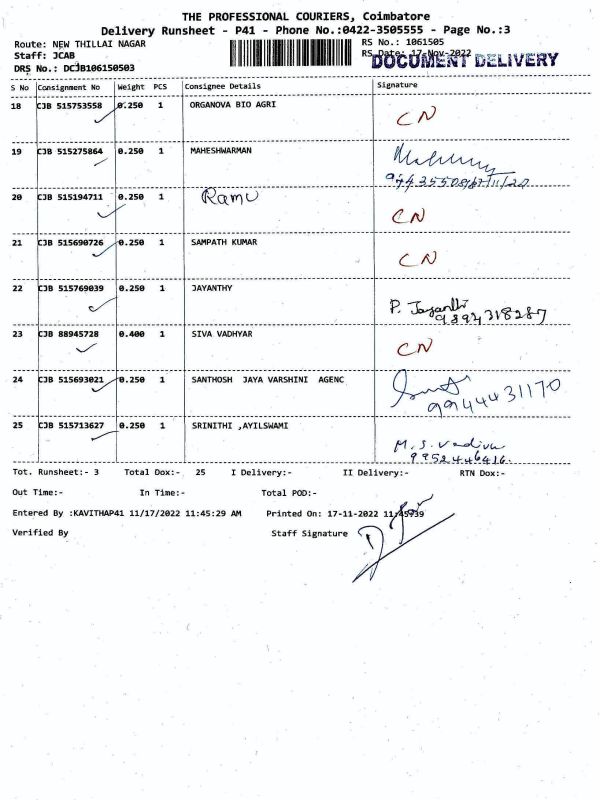 THE PROFESSIONAL COURIERS, Coimbatore
Delivery Runsheet - P41 - Phone No.:0422-3505555 - Page No.:3
Route: NEW THILLAI NAGAR
RS No.: 1061505
Staff: JCAB
RS Date: 17-Nov-2022
DOCUMENT DELIVERY
DRS No.: DCJB1061505O3
S No Consignment No Weight PCS Consignee Details Signature
18 CJB 515753558 0.250 1 ORGANOVA BIO AGRI CN
19 CJB 515275864 0.250 1 MAHESHWARMAN
20 CJB 515194711 0.250 1 Ramu CN
21 CJB 515690726 0.250 1 SAMPATH KUMAR CN
22 CJB 515769039 0.250 1 JAYANTHY P. Jayanthi
9894318287
23 CJB 88945728 0.400 1 SIVA VADHYAR CN
24 CJB 515693021 0.250 1 SANTHOSH JAYA VARSHINI AGENC
9944431170
25 CJB 515713627 0.250 1 SRINITHI ,AYILSWAMI M.S. Vadivu
9952446416.
Tot. Runsheet:- 3 Total Dox:- 25 I Delivery:- II Delivery:- RTN Dox:-
Out Time:- In Time:- Total POD:-
Entered By :KAVITHAP41 11/17/2022 11:45:29 AM Printed On: 17-11-2022 11:45:39
Verified By Staff Signature